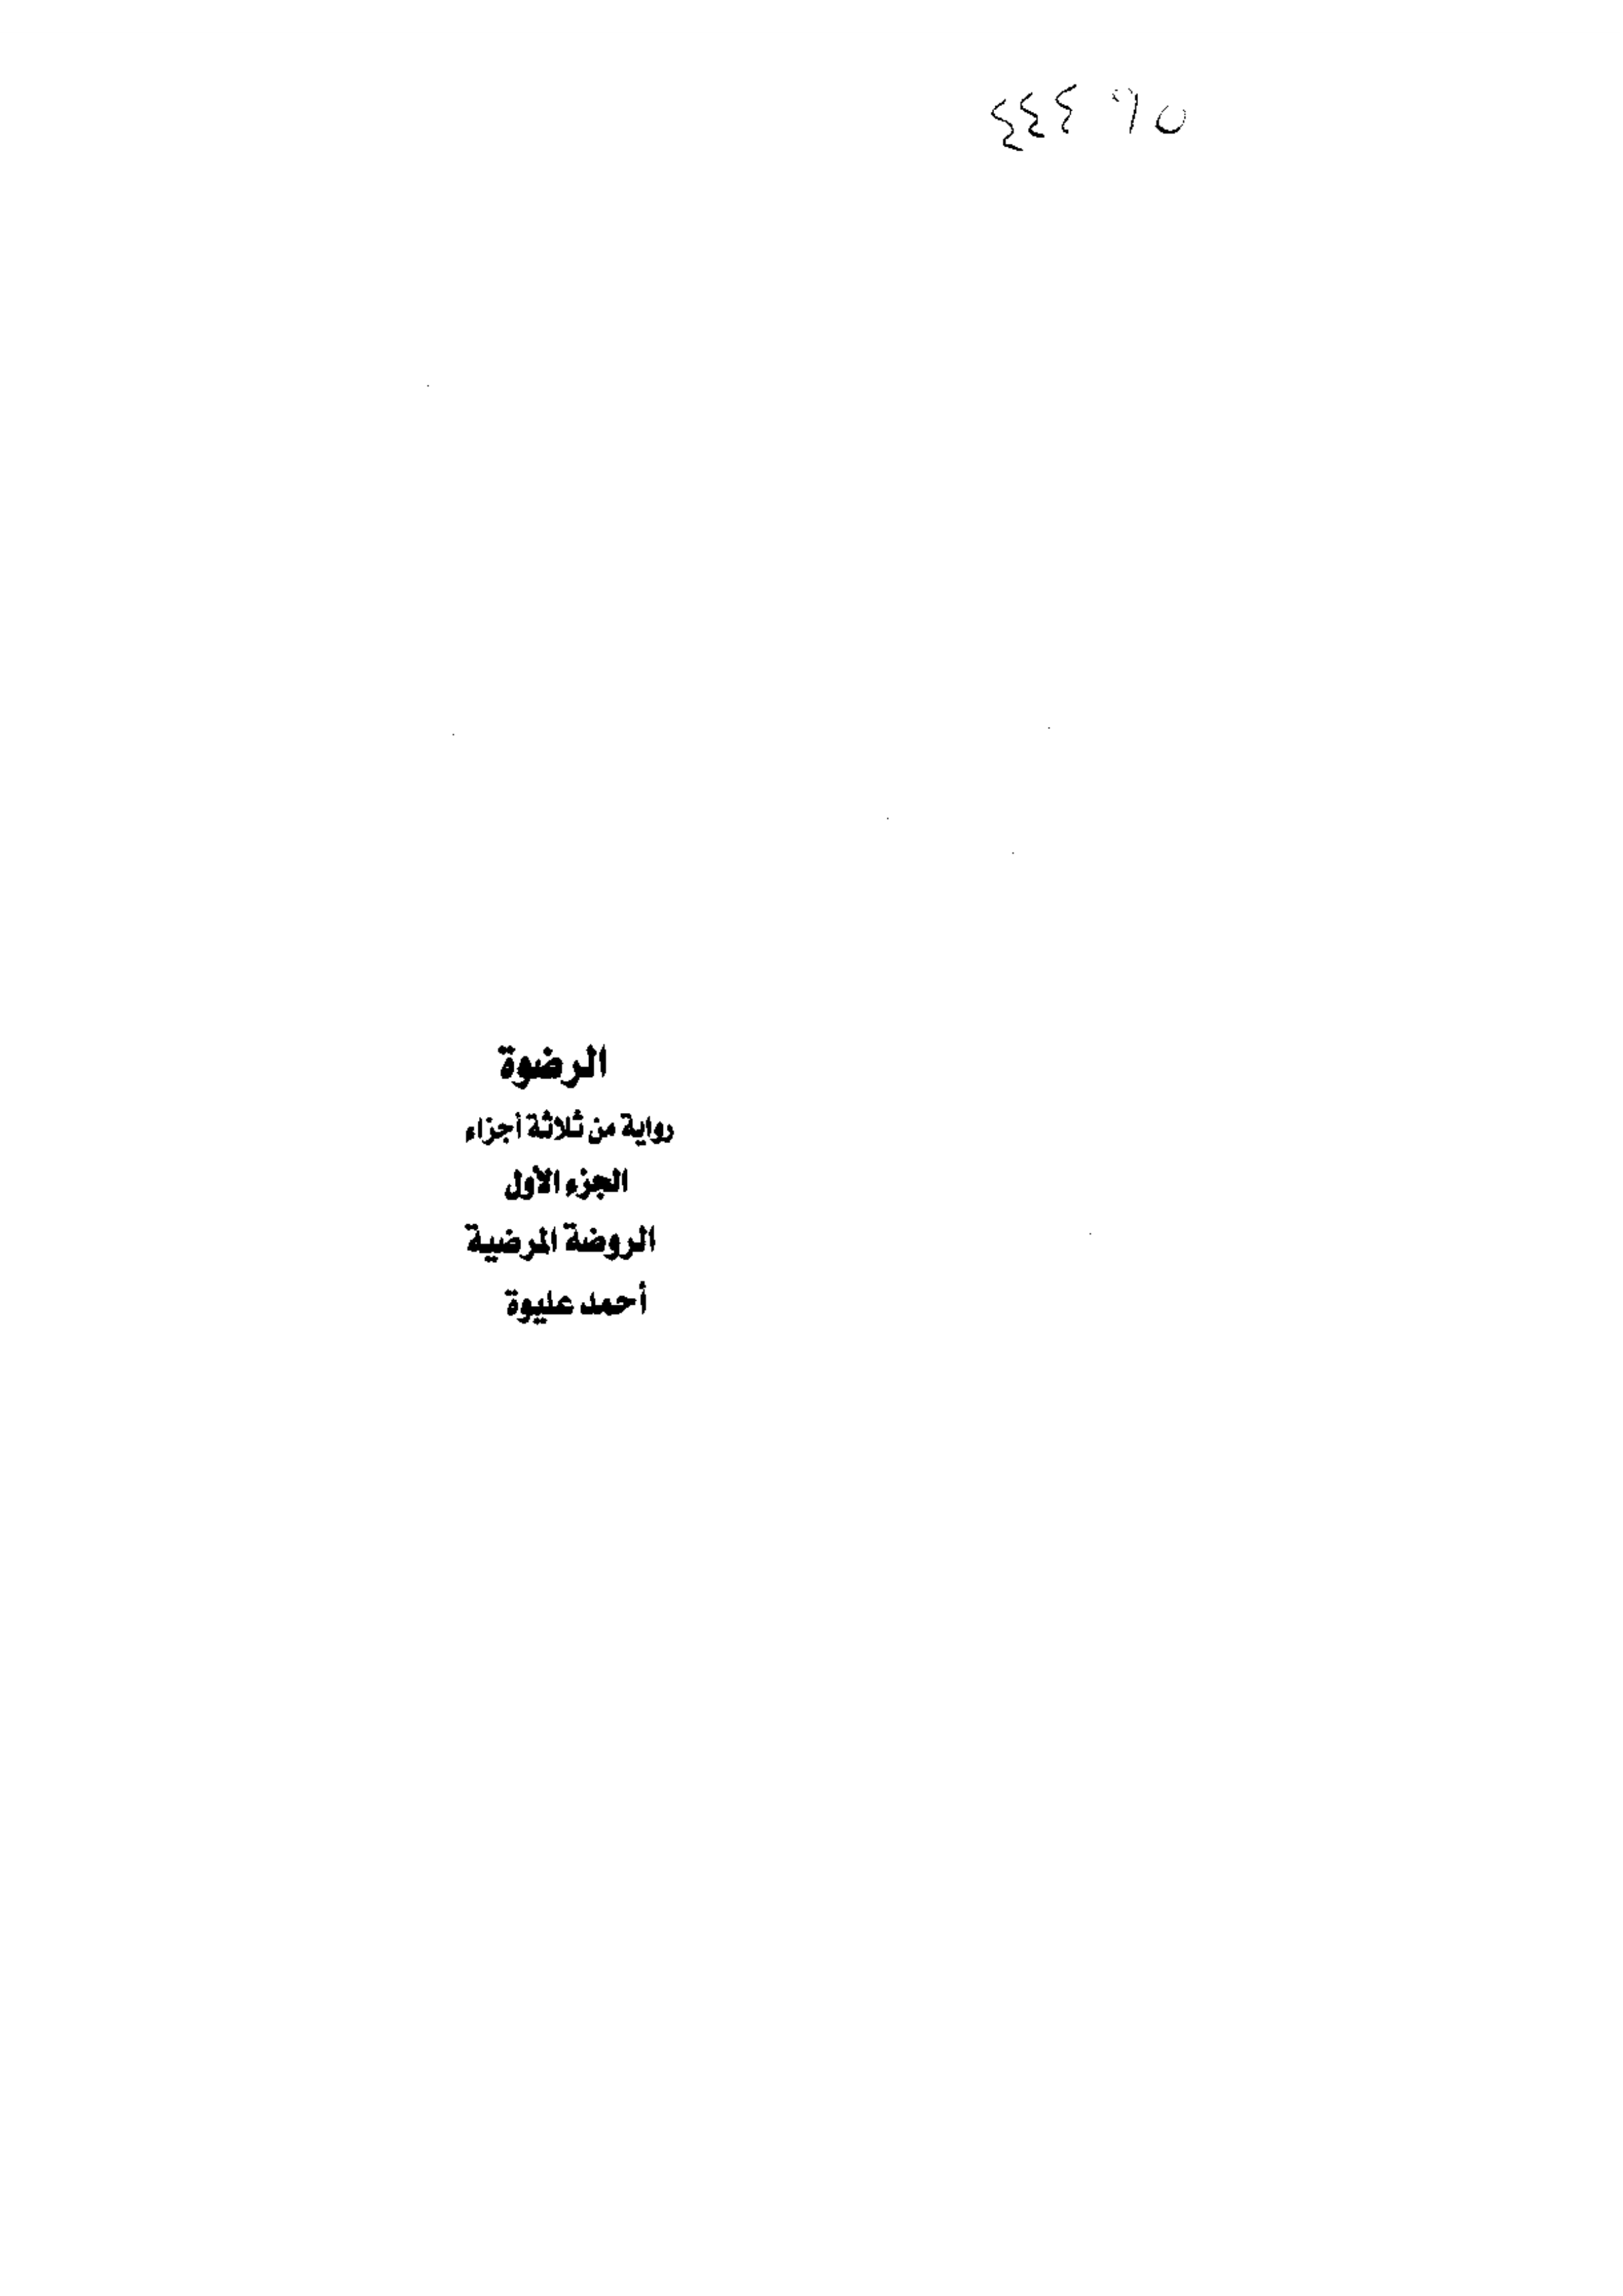 ٤٤٤٩٥
الرضوة
رواية من ثلاثة أجزاء
الجزء الأول
الروضة المرضية
أحمد عليوة